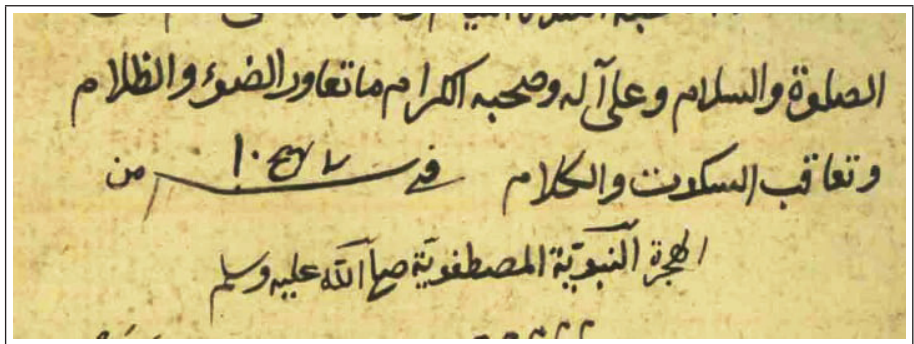 الصلوة والسلام وعلى آله وصحبه الكرام ما تعاور الضوء والظلام
وتعاقب السكوت والكلام في سنة ١٠٤٧ من
الهجرة النبوية المصطفوية صلى الله عليه وسلم